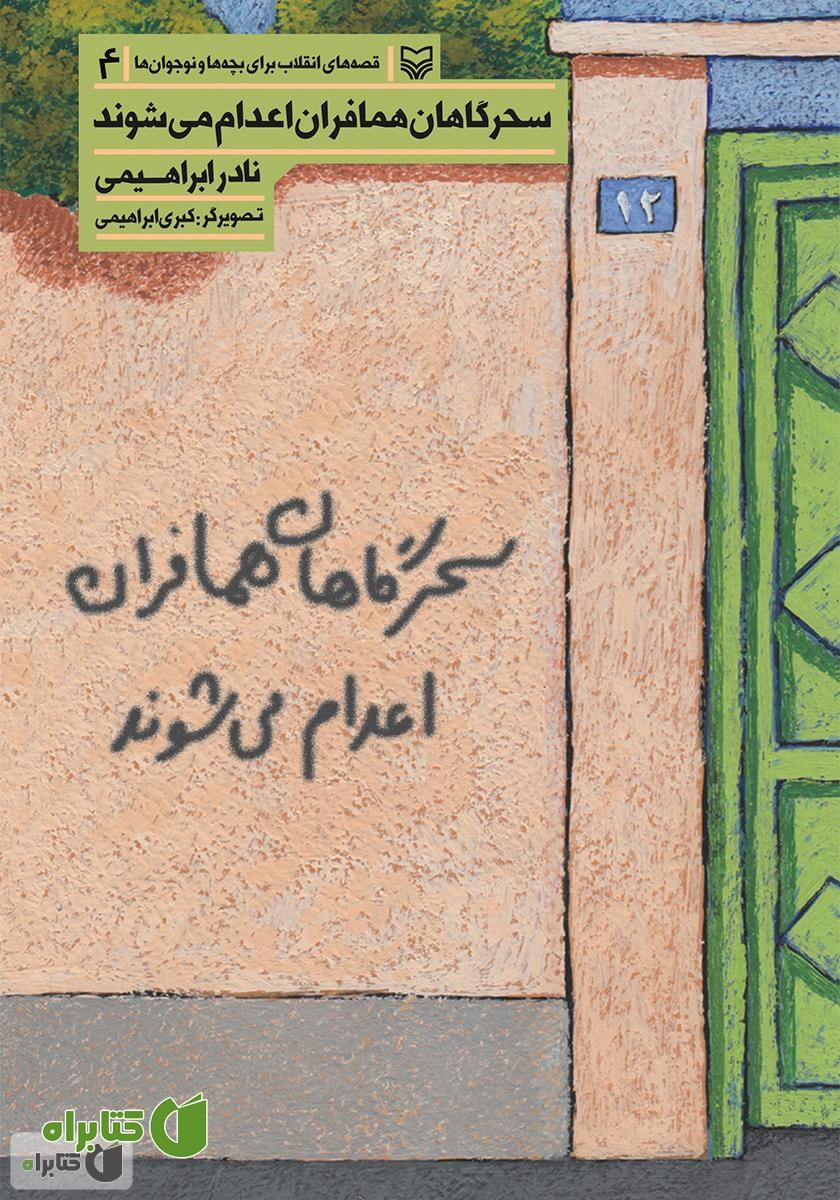 قصه‌های انقلاب برای بچه‌ها و نوجوان‌ها ۴
سحرگاهان همافران اعدام می‌شوند
نادر ابراهیمی
تصویرگر: کبری ابراهیمی
۱۲
سحرگاهان همافران
اعدام می‌شوند
کتابراه
کتابراه